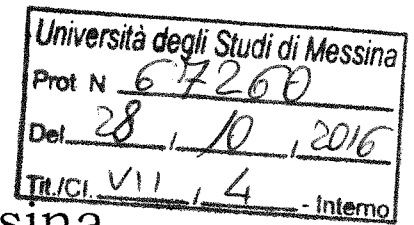 Università degli Studi di Messina
Prot N 67260
Del 28 / 10 / 2016
Tit./Cl. VII / 4 - Interno
sina